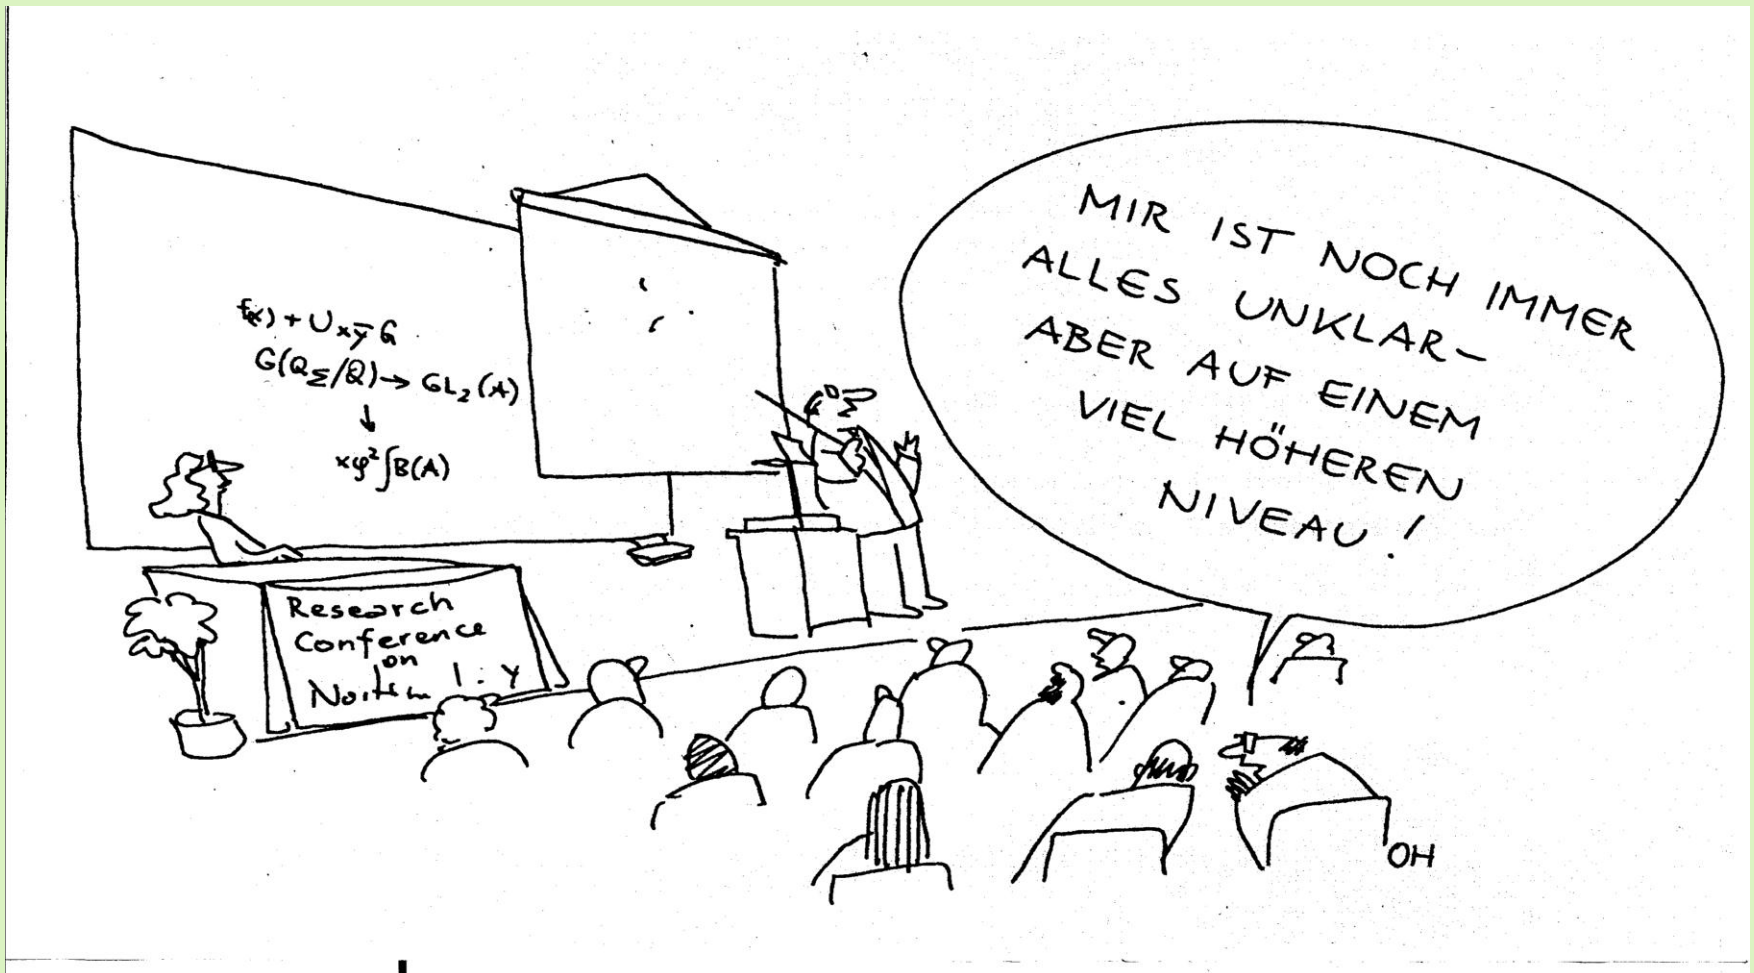 f(x) + U x ȳ G
G(Q_Σ/Q) → GL₂(A)
↓
xφ² ∫B(A)
Research
Conference
on
MIR IST NOCH IMMER
ALLES UNKLAR–
ABER AUF EINEM
VIEL HÖHEREN
NIVEAU!
OH